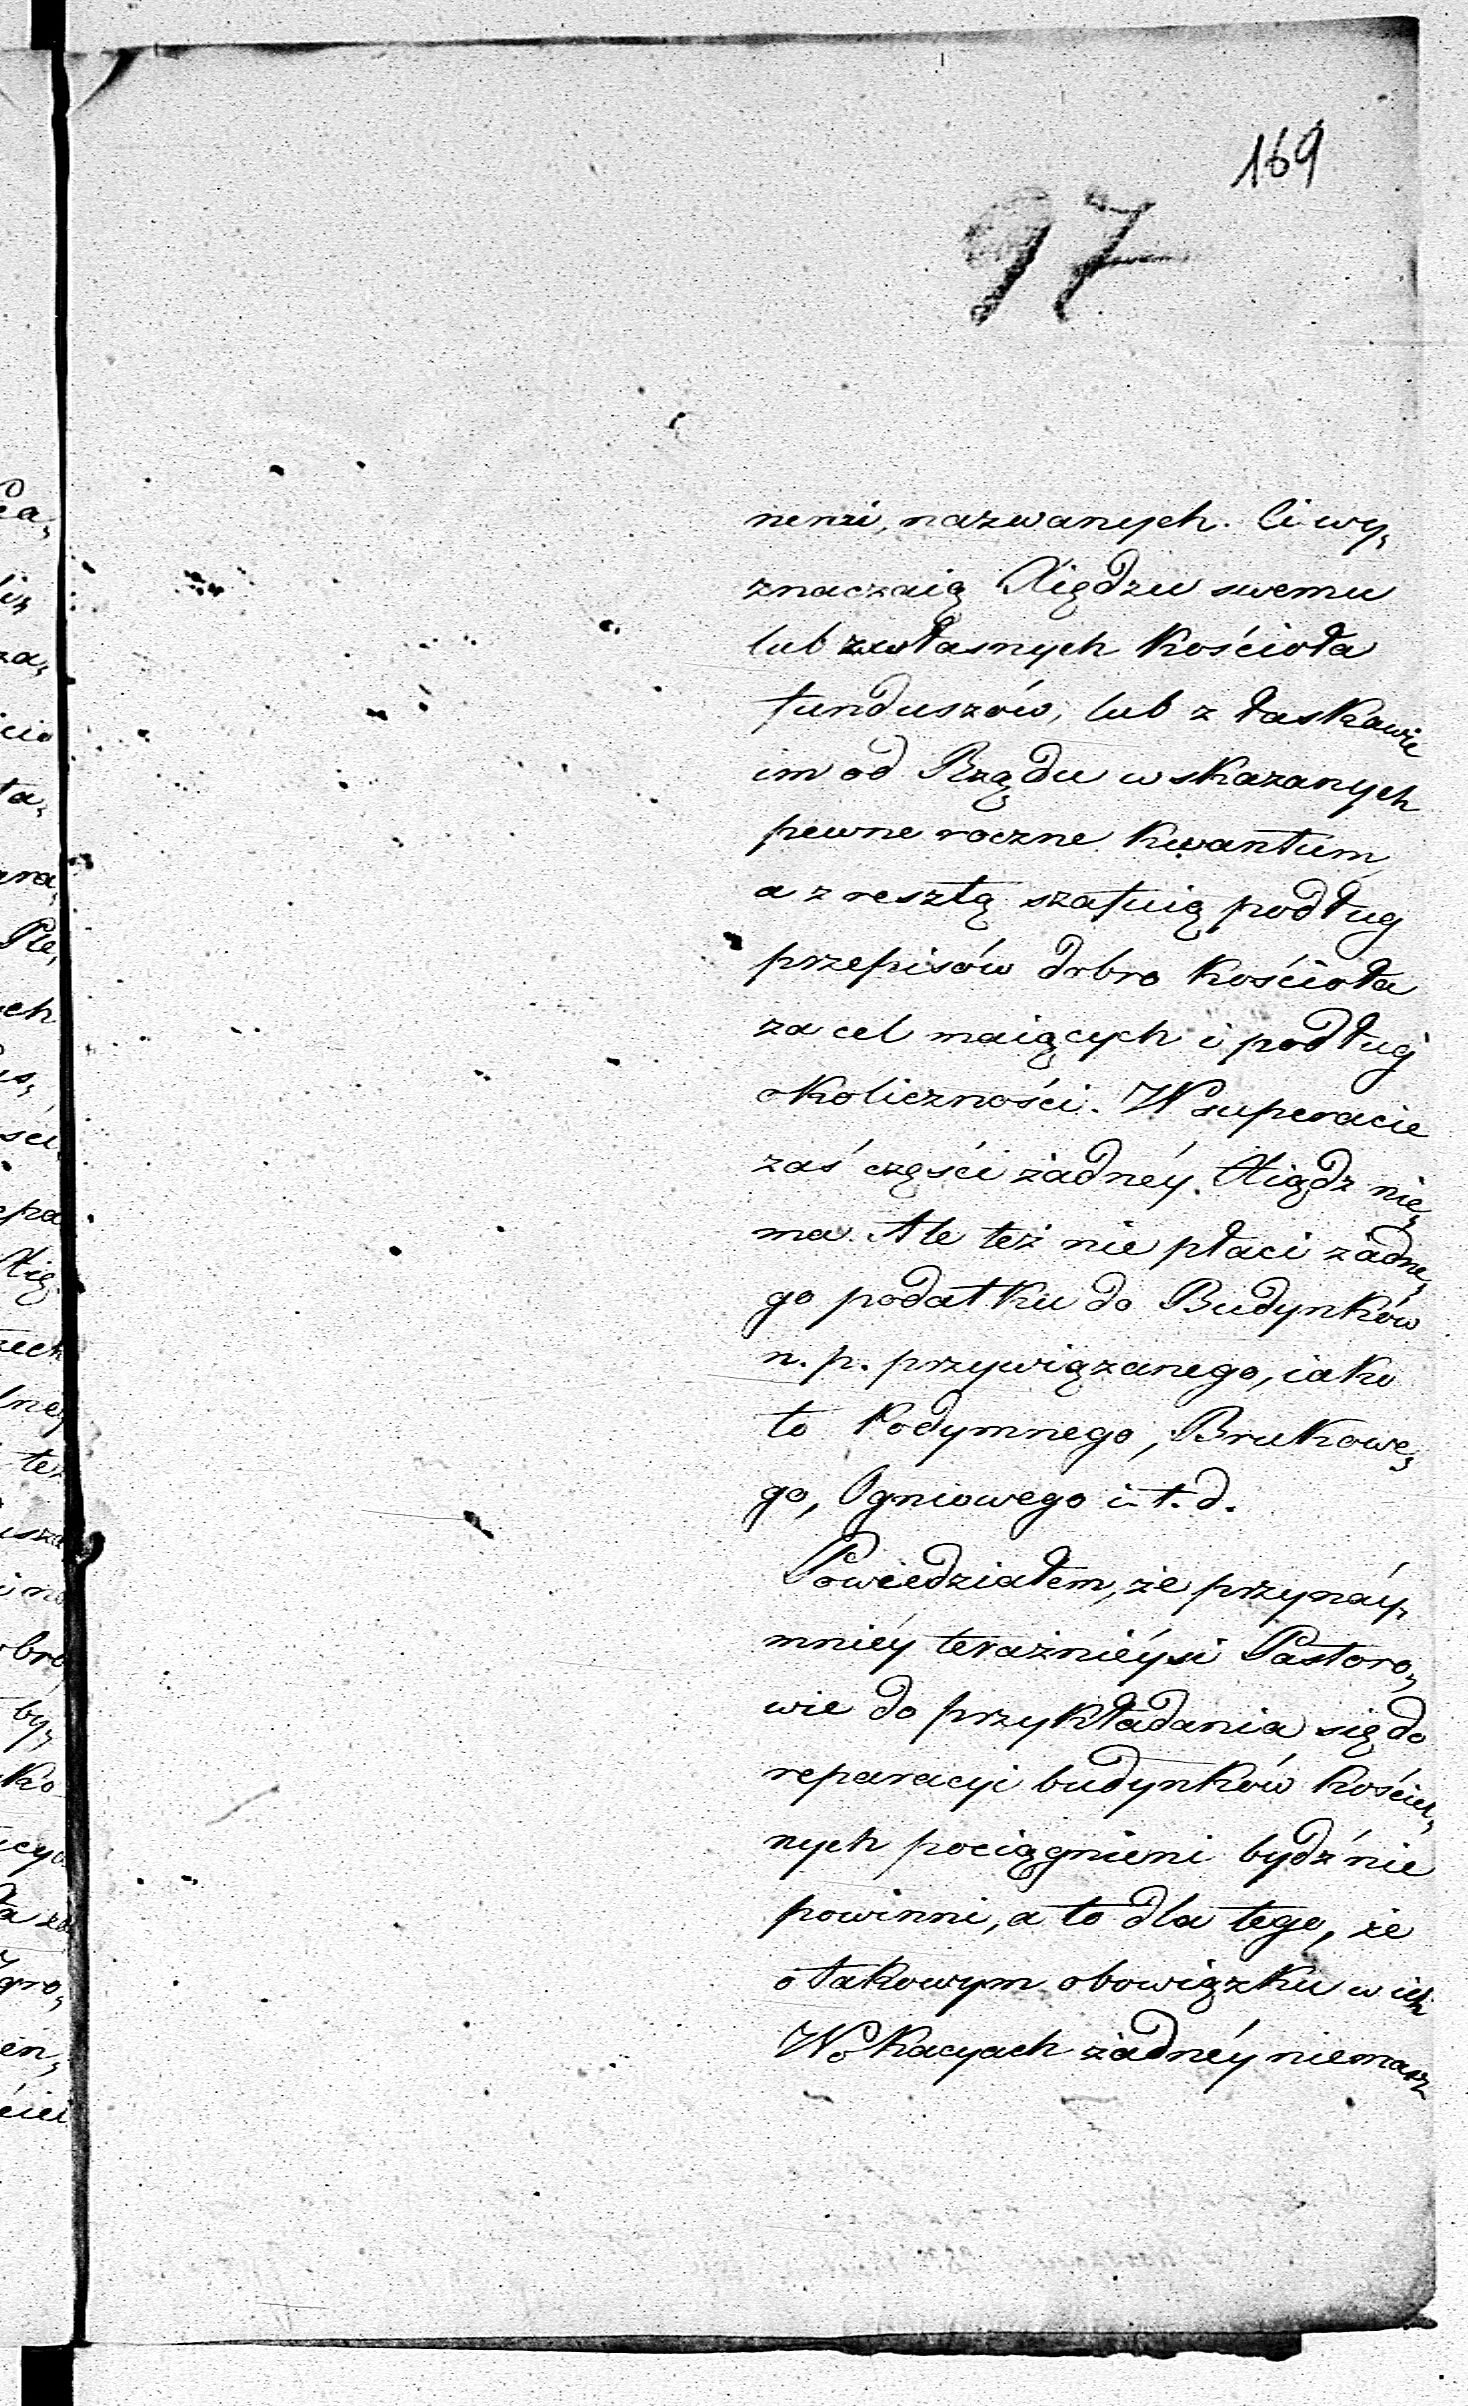 169
97
nenzi, nazwanych. Ci wy,
znaczaią Xiędzu swemu
lub zwłasnych Kościoła
funduszów, lub z łaskawie
im od Rządu wskazanych
pewne roczne Kwantum,
a z resztą szafuią podług
przepisów dobro Kościoła
za cel maiących i podług
okoliczności. W superacie
zaś części żadnéy Xiądz nie,
ma. Ale też nie płaci żadne,
go podatku do Budynków
n. p. przywiązanego, iako
to Podymnego, Brukowe,
go, Ogniowego i t. d.
Powiedziałem, że przynáy,
mniéy teraźnieýsi Pastoro,
wie do przykładania się do
reparacyi budynków Kościel,
nych pociągnieni bydź nie
powinni, a to dla tego, że
o takowym obowiązku w ich
Wokacyach żadnéy niemasz
ra,
za,
cie
ta,
ara,
Ple,
ych
ści
epa
Xię
też
obro
by,
ko
Zgro,
en,